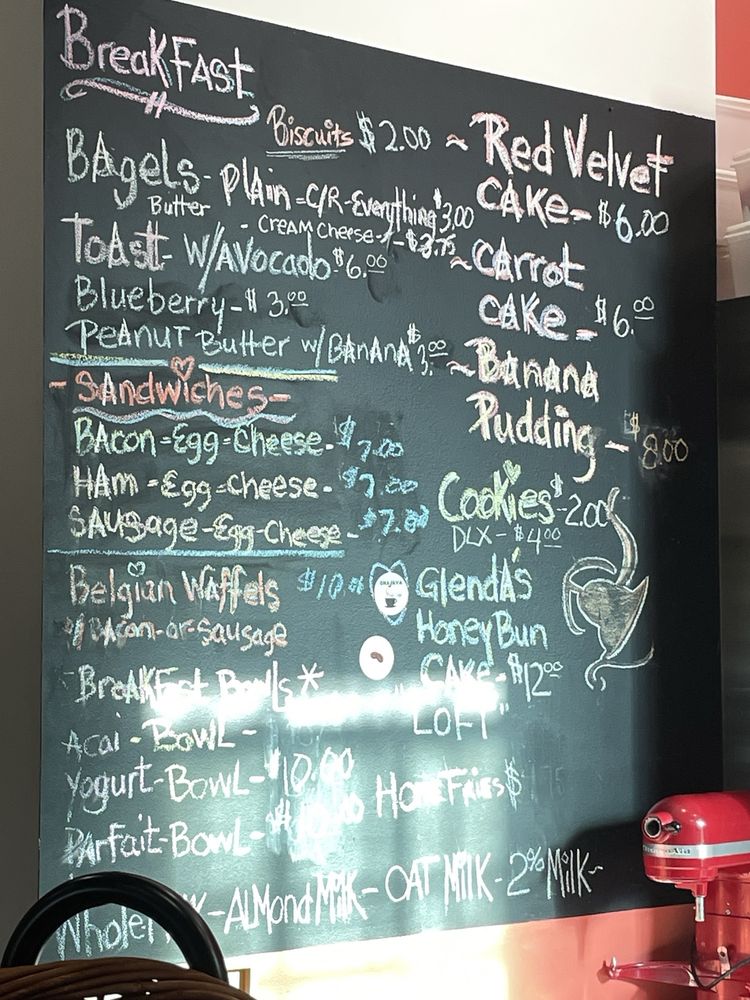 BreakFAst
Biscuits $2.00
BAgels- Plain - C/R - Everything $3.00
Butter
- CREAM Cheese - $3.75
ToAst- W/AVocado $6.00
Blueberry - $3.00
PeANUT Butter w/BANANA $3.00
- Sandwiches -
BAcon - Egg - Cheese - $7.00
HAm - Egg - cheese - $7.00
SAUSage - Egg - Cheese - $7.00
Belgian Waffels $10
W/BACon-or-Sausage
- BreAKFast Bowls *
Acai - BowL -
Yogurt - BowL - $10.00
PArfait - BowL -
~ Red Velvet
CAKe - $6.00
~ CArrot
CAKe - $6.00
~ BAnana
Pudding - $8.00
Cookies $2.00
DLX - $4.00
GlendA's
Honey Bun
CAKe - $12.00
"LOFT"
Home Fries $
Whole - ALMond Milk - OAT Milk - 2% Milk -
KitchenAid